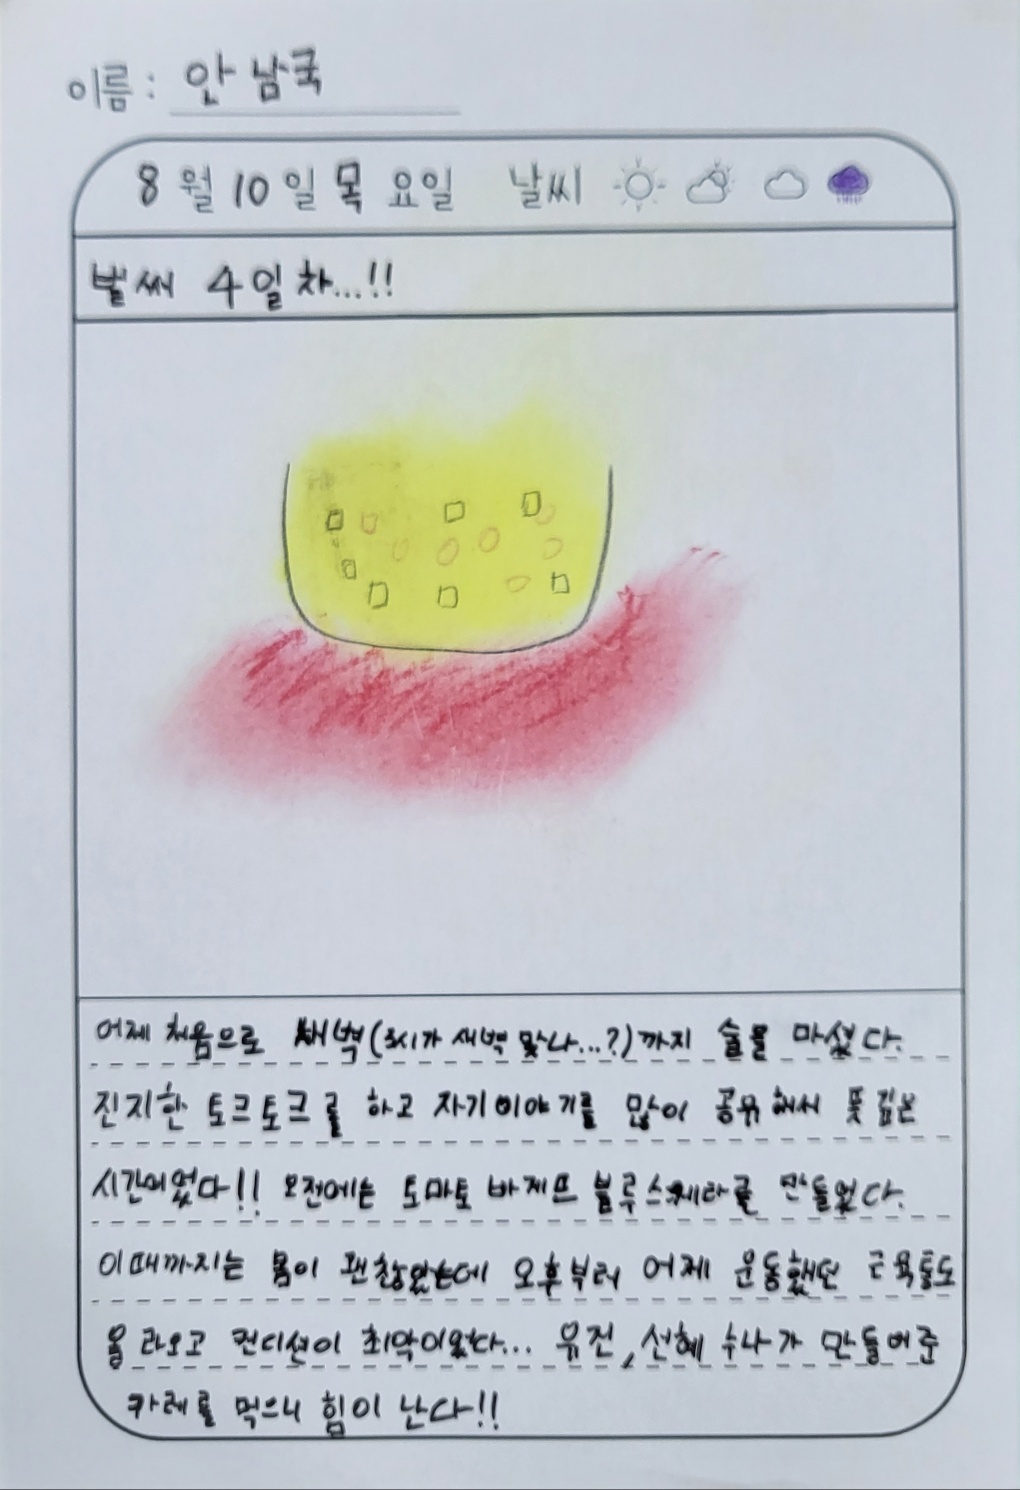 이름 : 안남국
8월 10일 목요일 날씨
벌써 4일차...!!
어제 처음으로 새벽(3시가 새벽 맞나...?)까지 술을 마셨다.
진지한 토크토크를 하고 자기이야기를 많이 공유해서 뜻 깊은
시간이었다!! 오전에는 토마토 바게뜨 블루스케타를 만들었다.
이때까지는 몸이 괜찮았는데 오후부터 어제 운동했던 근육통도
올라오고 컨디션이 최악이었다... 유진, 선혜 누나가 만들어준
카레를 먹으니 힘이 난다!!